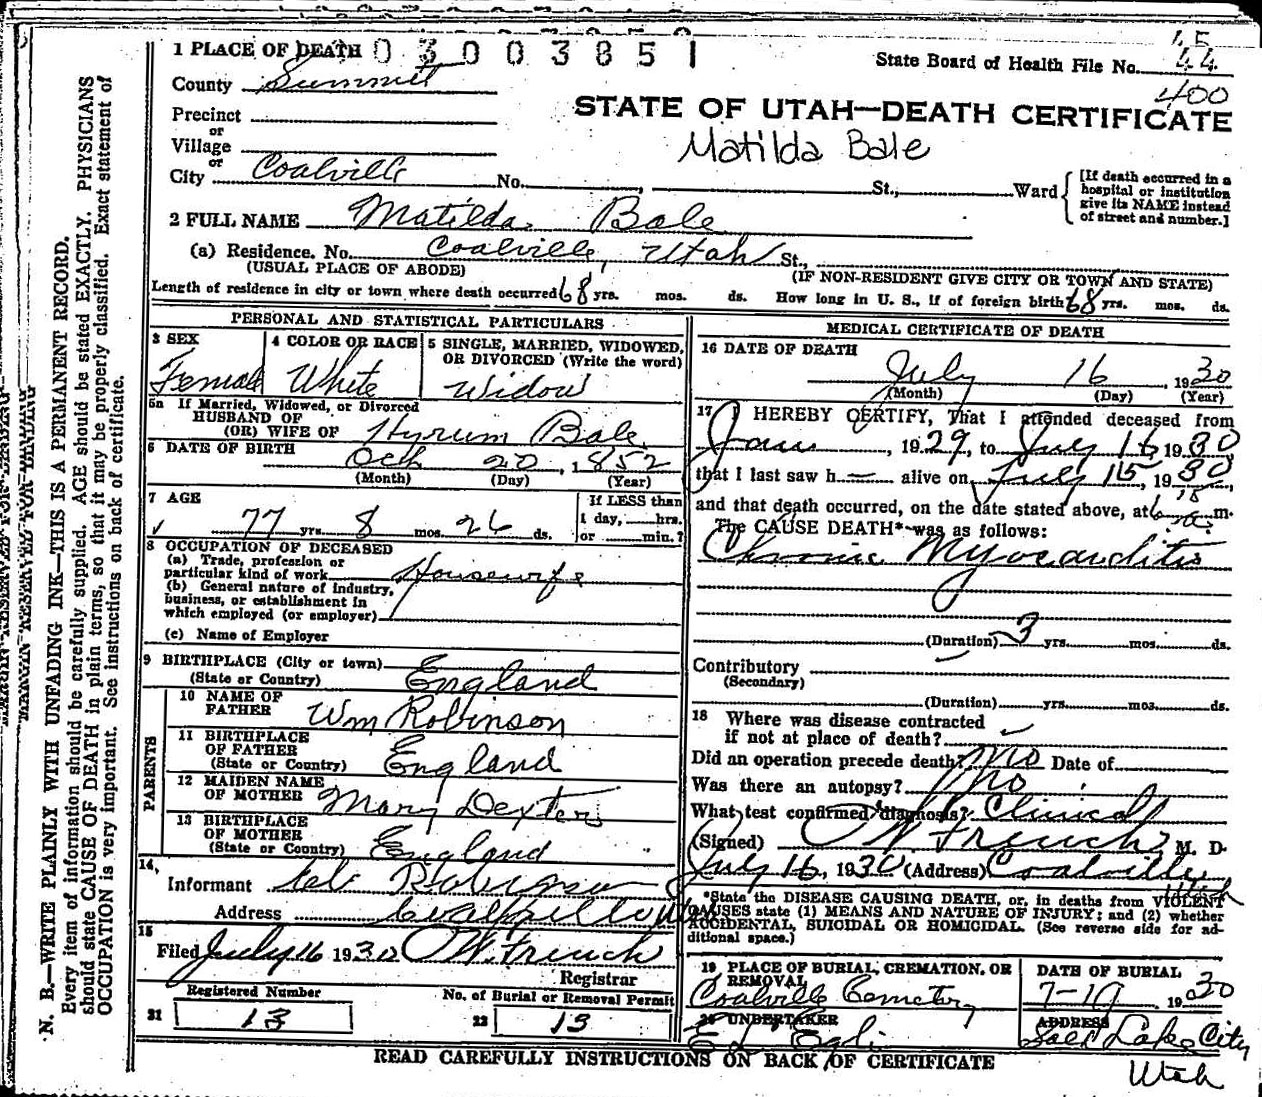 45
1 PLACE OF DEATH 03003851
State Board of Health File No. 44
County Summit
400
STATE OF UTAH—DEATH CERTIFICATE
Precinct
or
Village
Matilda Bale
or
City Coalville No. , St., Ward
[If death occurred in a
hospital or institution
give its NAME instead
of street and number.]
2 FULL NAME Matilda Bale
(a) Residence. No. Coalville, Utah St.,
(USUAL PLACE OF ABODE) (IF NON-RESIDENT GIVE CITY OR TOWN AND STATE)
Length of residence in city or town where death occurred 68 yrs. mos. ds. How long in U. S., if of foreign birth 68 yrs. mos. ds.
PERSONAL AND STATISTICAL PARTICULARS
3 SEX
Female
4 COLOR OR RACE
White
5 SINGLE, MARRIED, WIDOWED,
OR DIVORCED (Write the word)
Widow
5a If Married, Widowed, or Divorced
HUSBAND OF
(OR) WIFE OF Hyrum Bale
6 DATE OF BIRTH
Oct 20, 1852
(Month) (Day) (Year)
7 AGE
77 yrs. 8 mos. 26 ds.
If LESS than
1 day, hrs.
or min.?
8 OCCUPATION OF DECEASED
(a) Trade, profession or
particular kind of work Housewife
(b) General nature of industry,
business, or establishment in
which employed (or employer)
(c) Name of Employer
9 BIRTHPLACE (City or town)
(State or Country) England
PARENTS
10 NAME OF
FATHER Wm Robinson
11 BIRTHPLACE
OF FATHER
(State or Country) England
12 MAIDEN NAME
OF MOTHER Mary Dexter
13 BIRTHPLACE
OF MOTHER
(State or Country) England
14,
Informant Robinson
Address Coalville
15
Filed July 16 1930 O W. French
Registrar
Registered Number
21 13
No. of Burial or Removal Permit
22 13
MEDICAL CERTIFICATE OF DEATH
16 DATE OF DEATH
July 16, 1930
(Month) (Day) (Year)
17 I HEREBY CERTIFY, That I attended deceased from
Jan, 1929, to July 16 1930
that I last saw h alive on July 15, 1930,
and that death occurred, on the date stated above, at m.
The CAUSE DEATH* was as follows:
Chronic Myocarditis
(Duration) 3 yrs. mos. ds.
Contributory
(Secondary)
(Duration) yrs. mos. ds.
18 Where was disease contracted
if not at place of death?
Did an operation precede death? No Date of
Was there an autopsy? No
What test confirmed diagnosis? Clinical
(Signed) O W. French M. D.
July 16, 1930 (Address) Coalville
Utah
*State the DISEASE CAUSING DEATH, or, in deaths from VIOLENT
CAUSES state (1) MEANS AND NATURE OF INJURY; and (2) whether
ACCIDENTAL, SUICIDAL OR HOMICIDAL. (See reverse side for ad-
ditional space.)
19 PLACE OF BURIAL, CREMATION, OR
REMOVAL
Coalville Cemetery
DATE OF BURIAL
7-19, 1930
20 UNDERTAKER
E L Egli
ADDRESS
Salt Lake City
Utah
READ CAREFULLY INSTRUCTIONS ON BACK OF CERTIFICATE
MARGIN RESERVED FOR BINDING
N. B.—WRITE PLAINLY WITH UNFADING INK—THIS IS A PERMANENT RECORD.
Every item of information should be carefully supplied. AGE should be stated EXACTLY. PHYSICIANS
should state CAUSE OF DEATH in plain terms, so that it may be properly classified. Exact statement of
OCCUPATION is very important. See instructions on back of certificate.